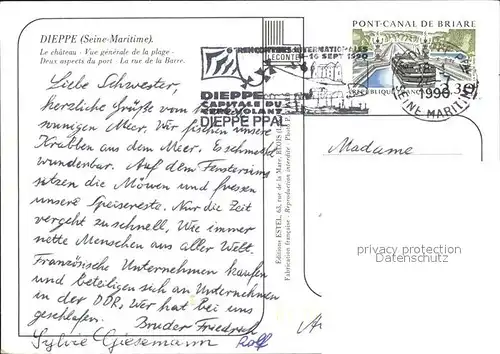 DIEPPE (Seine-Maritime).
Le château - Vue générale de la plage -
Deux aspects du port - La rue de la Barre.
6 RENCONTRES INTERNATIONALES
LECONTE
-16 SEPT 1990
DIEPPE
CAPITALE DU
CERF-VOLANT
DIEPPE PPAL
PONT-CANAL DE BRIARE
1990
SEINE MARITIME
Liebe Schwester,
herzliche Grüße vom
Meer. Wir fischen unsere
Krabben aus dem Meer. Es schmeckt
wunderbar. Auf dem Fenstersims
sitzen die Möwen und fressen
unsere Speisereste. Nur die Zeit
vergeht zu schnell. Wie immer
nette Menschen aus aller Welt.
Französische Unternehmen kaufen
und beteiligen sich an Unternehmen
in der DDR. Wer hat bei uns
geschlafen. Bruder Friedrich
Sylvie Giesemann Rolf
Editions ESTEL, 63, rue de la Mare,
Fabrication française - Reproduction interdite
Madame
privacy protection
Datenschutz